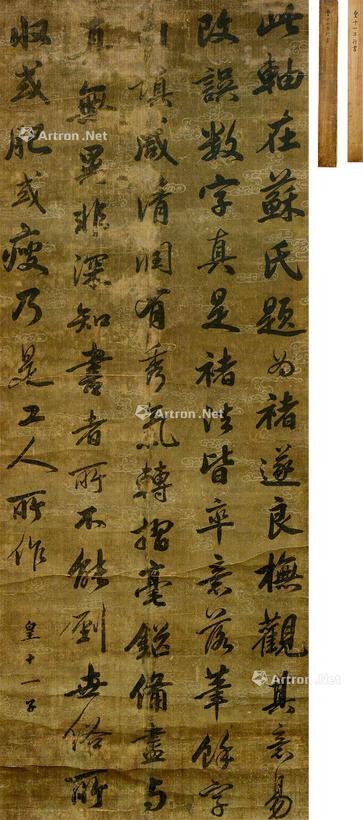 此軸在蘇氏題為褚遂良橅觀其意易
改誤數字真是褚法皆率意落筆餘字
填咸清潤有秀氣轉摺毫鋩備盡與
真無異非深知書者所不能到世俗所
收或肥或瘦乃是工人所作
皇十一子
皇十一子行書
Artron.Net
Artron.Net
Artron.Net
Artron.Net